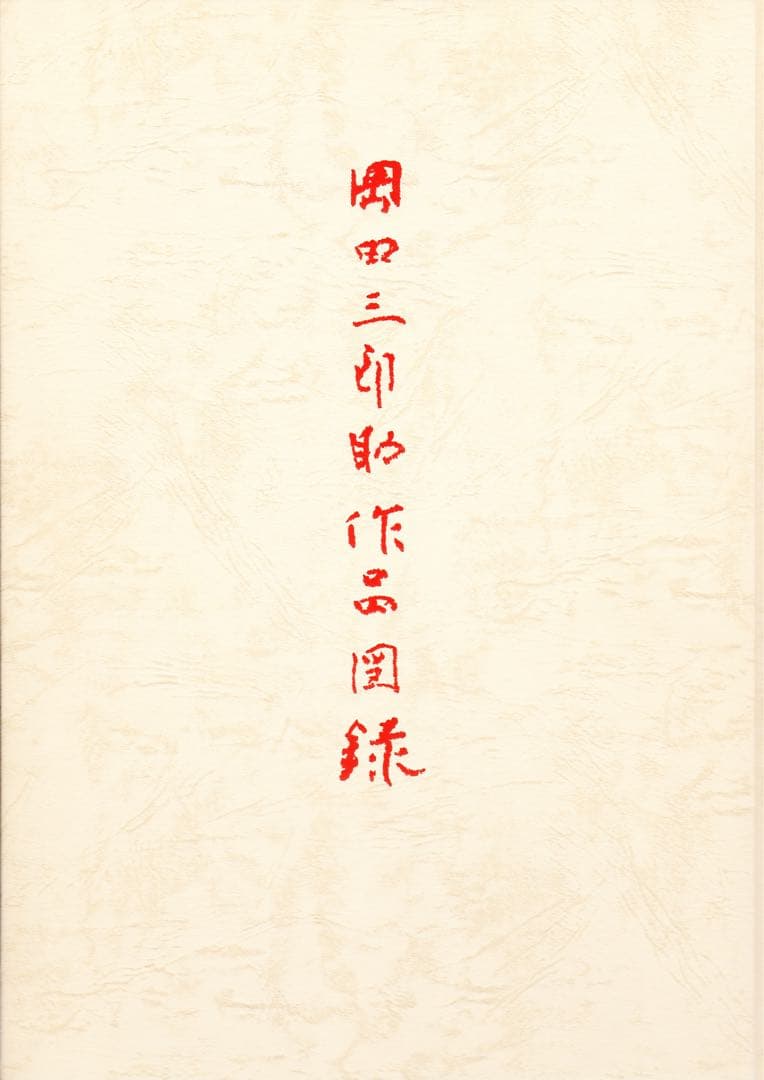 岡田三郎助作品図録